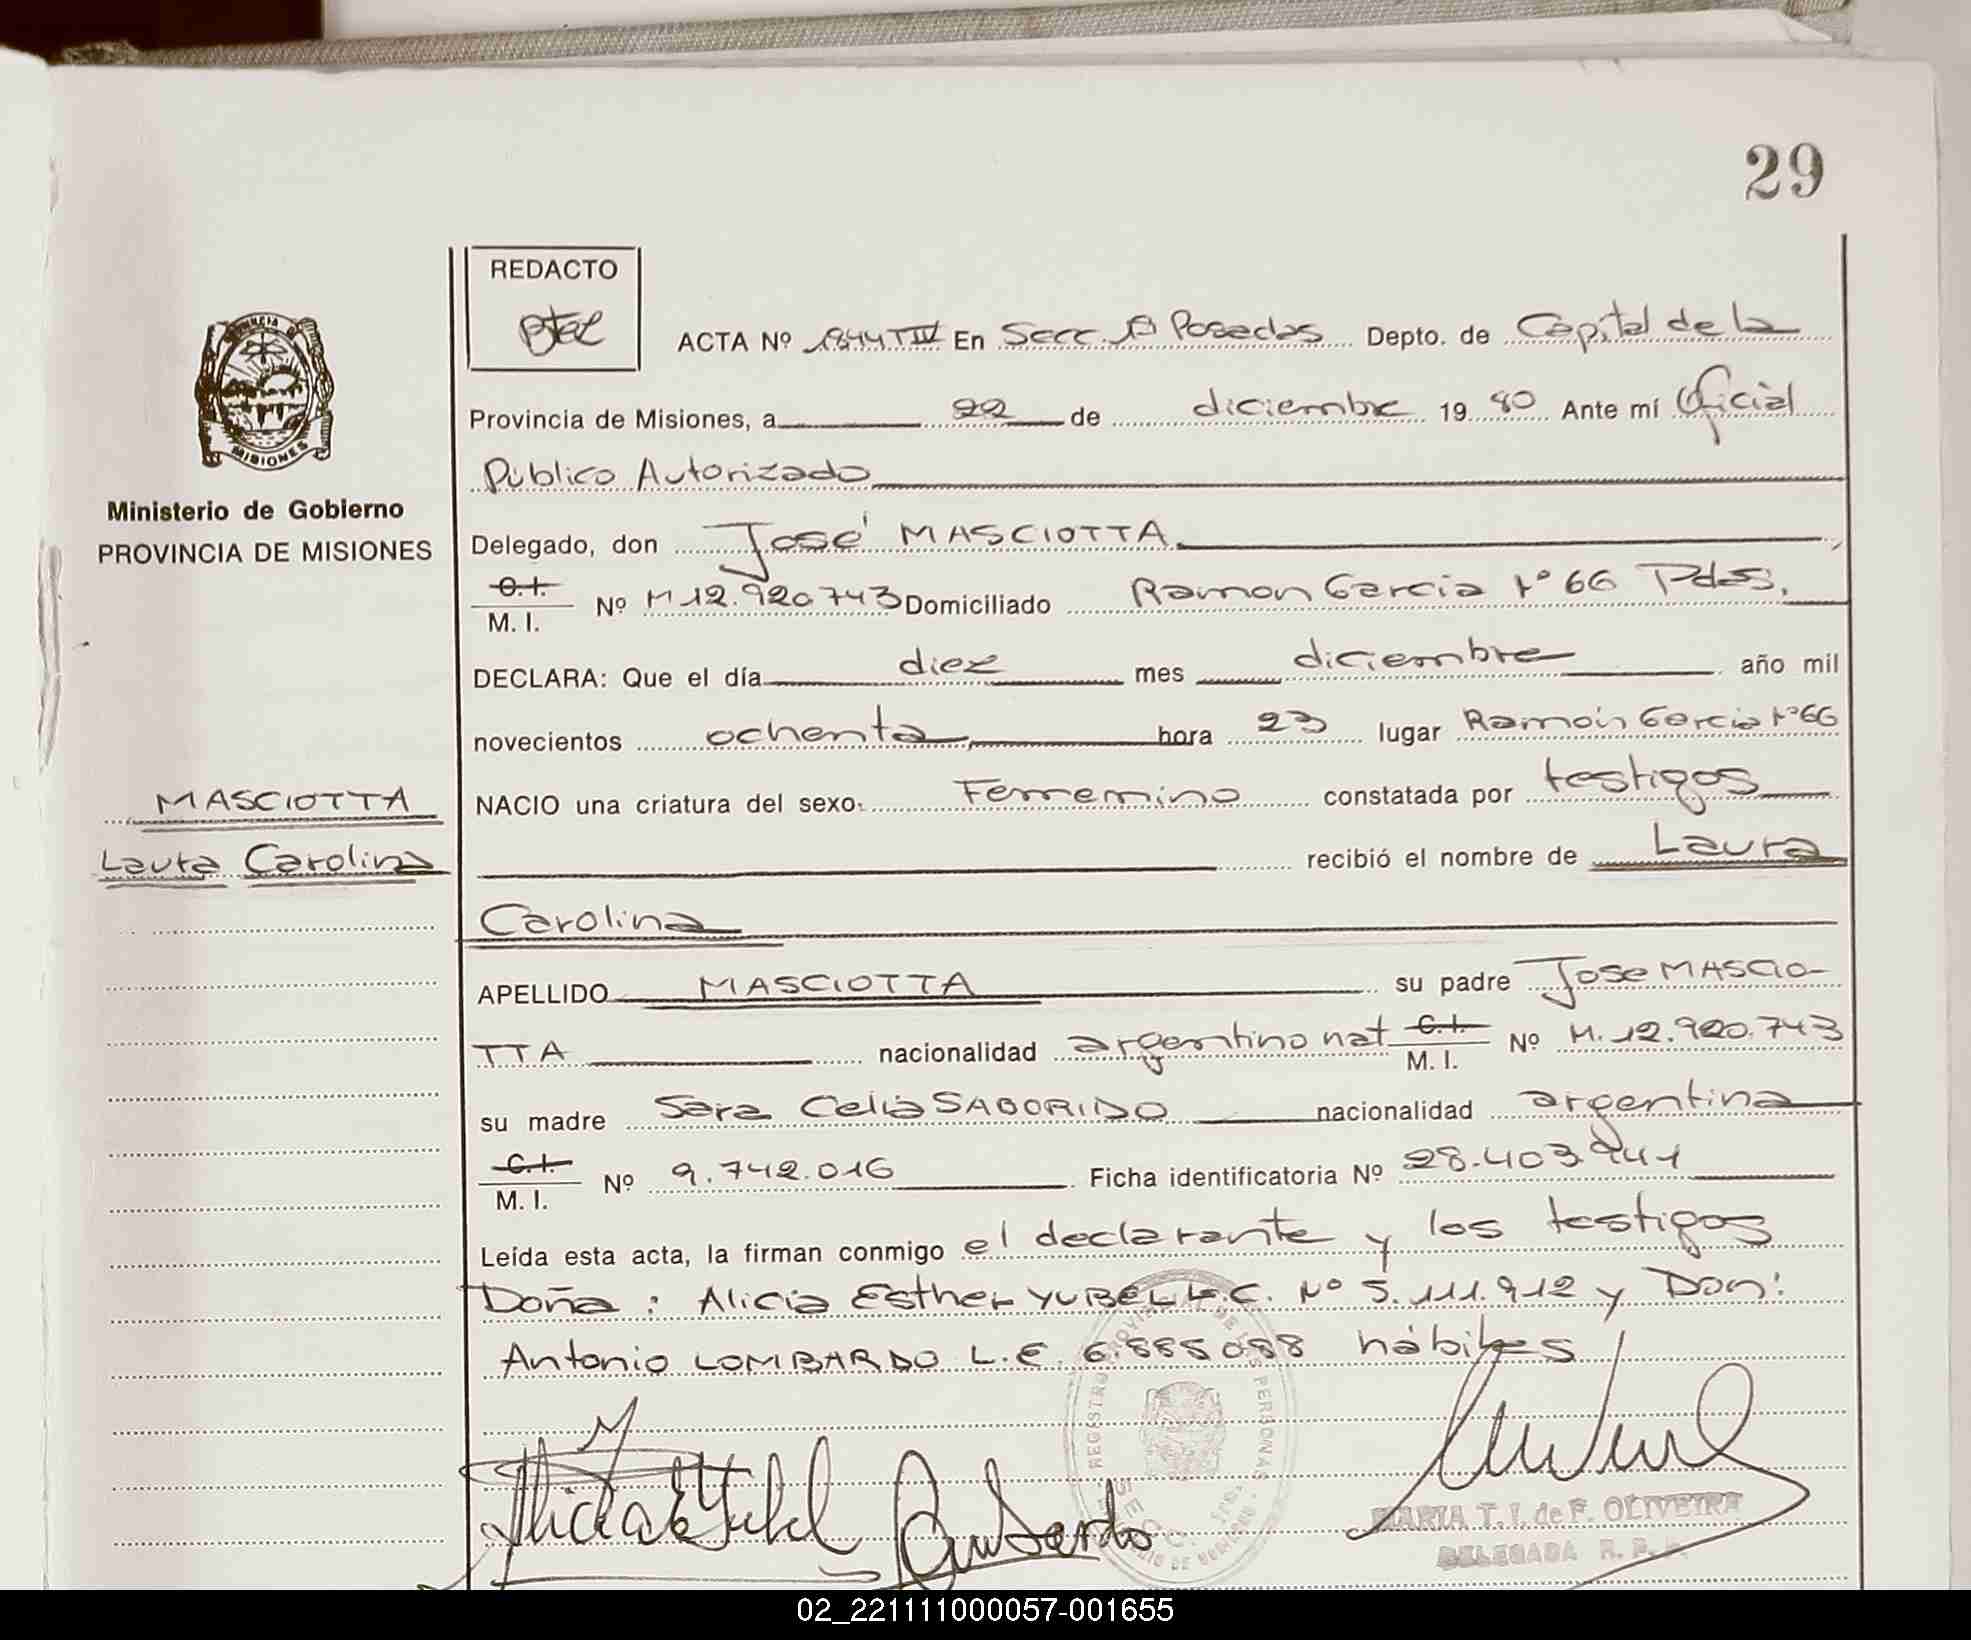 29
REDACTO
ACTA Nº 1844 T IV En Secc. 1º Posadas Depto. de Capital de la
Provincia de Misiones, a 22 de diciembre 1980 Ante mí Oficial
Público Autorizado
Delegado, don José MASCIOTTA
C.I. M. I. Nº M 12.920743 Domiciliado Ramon Garcia Nº 66 Pdas.
DECLARA: Que el día diez mes diciembre año mil
novecientos ochenta hora 23 lugar Ramón Garcia Nº66
NACIO una criatura del sexo: Femenino constatada por testigos
recibió el nombre de Laura
Carolina
APELLIDO MASCIOTTA su padre Jose MASCIO-
TTA nacionalidad argentino nat C.I. M. I. Nº M. 12.920.743
su madre Sara Celia SABORIDO nacionalidad argentina
C.I. M. I. Nº 9.742.016 Ficha identificatoria Nº 28.403.941
Leída esta acta, la firman conmigo el declarante y los testigos
Doña: Alicia Esther YUBEL L.C. Nº 5.111.912 y Don:
Antonio LOMBARDO L.E. 6.885088 hábiles
PROVINCIA DE
MISIONES
Ministerio de Gobierno
PROVINCIA DE MISIONES
MASCIOTTA
Laura Carolina
MARIA T. I. de F. OLIVEIRA
DELEGADA R. P. P.
02_221111000057-001655